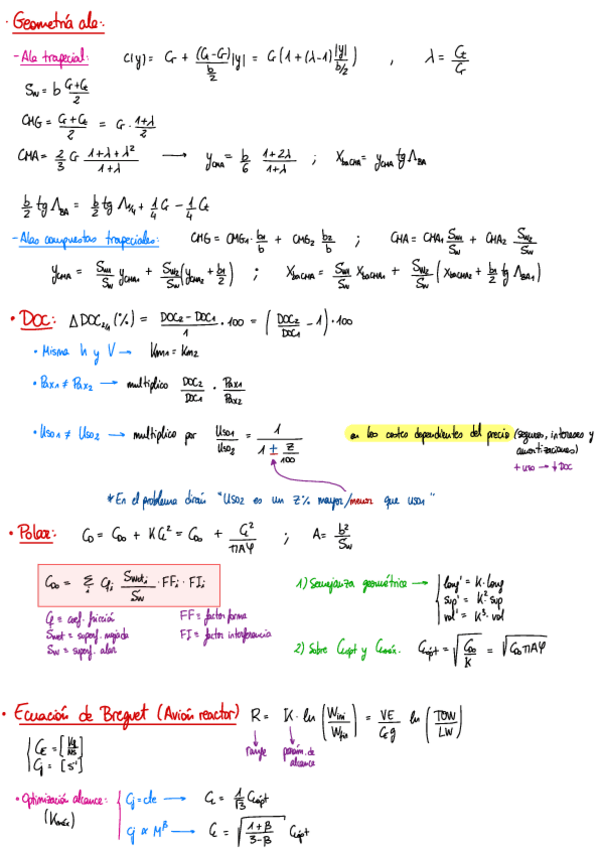 · Geometría ala:
- Ala trapecial: C(y) = Cr + (Ct-Cr)/(b/2) |y| = Cr (1+(λ-1) |y|/(b/2)) , λ = Ct/Cr
Sw = b (Cr+Ct)/2
CMG = (Cr+Ct)/2 = Cr · (1+λ)/2
CMA = 2/3 Cr (1+λ+λ²)/(1+λ) → yCMA = b/6 (1+2λ)/(1+λ) ; XbaCMA = yCMA tg ΛBA
b/2 tg ΛBA = b/2 tg Λ1/4 + 1/4 Cr - 1/4 Ct
- Alas compuestas trapeciales: CMG = CMG1 · b1/b + CMG2 b2/b ; CMA = CMA1 Sw1/Sw + CMA2 Sw2/Sw
yCMA = Sw1/Sw yCMA1 + Sw2/Sw (yCMA2 + b1/2) ; XbaCMA = Sw1/Sw XbaCMA1 + Sw2/Sw (XbaCMA2 + b1/2 tg ΛBA1)
· DOC: ΔDOC2/1 (%) = (DOC2 - DOC1)/1 · 100 = (DOC2/DOC1 - 1) · 100
· Misma h y V → Km1 = Km2
· Pax1 ≠ Pax2 → multiplico DOC2/DOC1 · Pax1/Pax2
· Uso1 ≠ Uso2 → multiplico por Uso1/Uso2 = 1/(1 ± z/100) en los costes dependientes del precio (seguros, intereses y amortizaciones)
+ uso → ↓ DOC
* En el problema dirán "Uso2 es un z% mayor/menor que uso1"
· Polar: CD = CD0 + KCL² = CD0 + CL²/(πAφ) ; A = b²/Sw
CD0 = Σi Cfi Sweti/Sw · FFi · FIi
Cf = coef. fricción
FF = factor forma
Swet = superf. mojada
FI = factor interferencia
Sw = superf. alar
1) Semejanza geométrica → long' = K · long
sup' = K² sup
vol' = K³ · vol
2) Sobre CLópt y CLmáx. CLópt = √(CD0/K) = √(CD0πAφ)
· Ecuación de Breguet (Avión reactor) R = K · ln (Wini/Wfin) = VE/(CEg) ln (TOW/LW)
rango
parám. de alcance
CE = [Kg/NS]
Cj = [s⁻¹]
· Optimización alcance: Cj = cte → CL = 1/√3 CLópt
(Kmáx) Cj ∝ M^β → CL = √((1+β)/(3-β)) CLópt